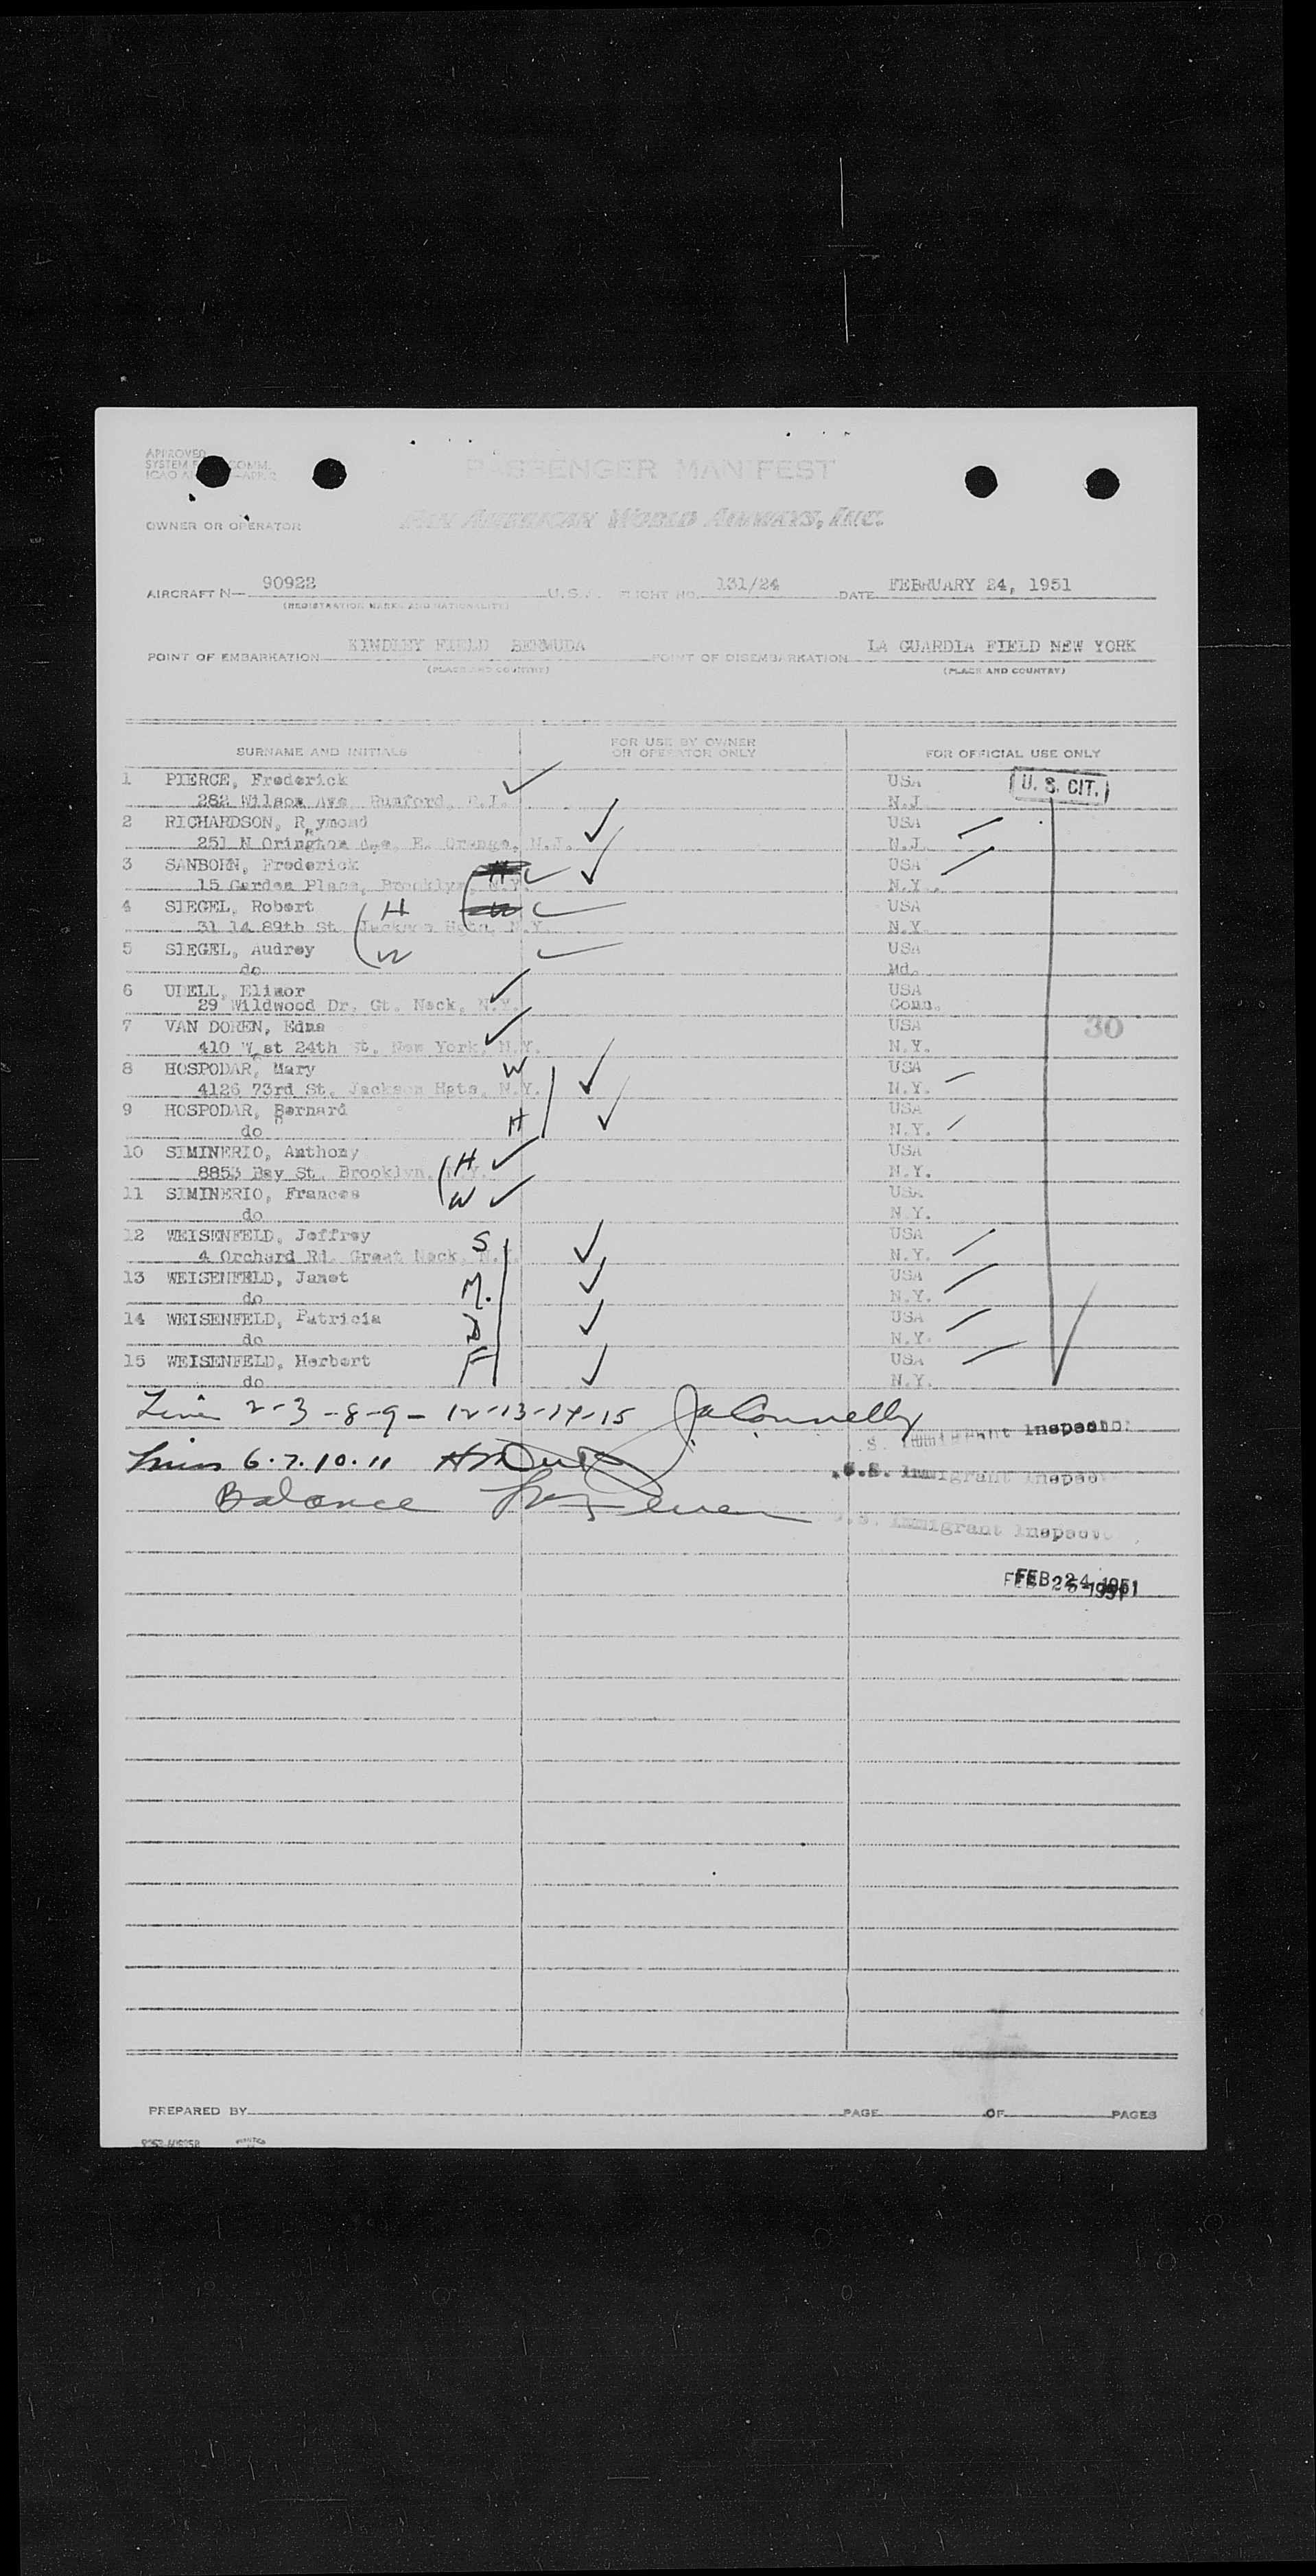 APPROVED
SYSTEM COMM.
ICAO
PASSENGER MANIFEST
OWNER OR OPERATOR PAN AMERICAN WORLD AIRWAYS, INC.
AIRCRAFT N— 90922 U.S.A. FLIGHT NO. 131/24 DATE FEBRUARY 24, 1951
(REGISTRATION MARKS AND NATIONALITY)
POINT OF EMBARKATION KINDLEY FIELD BERMUDA POINT OF DISEMBARKATION LA GUARDIA FIELD NEW YORK
(PLACE AND COUNTRY) (PLACE AND COUNTRY)
SURNAME AND INITIALS FOR USE BY OWNER OR OPERATOR ONLY FOR OFFICIAL USE ONLY
1 PIERCE, Frederick USA U. S. CIT.
282 Wilson Ave. Rumford, R.I. N.J.
2 RICHARDSON, Raymond USA
251 N Oringhom Ave. E. Orange, N.J. N.J.
3 SANBORN, Frederick USA
15 Garden Place, Brooklyn, N.Y. N.Y.
4 SIEGEL, Robert H USA
31 14 89th St. Jackson Hgts, N.Y. N.Y.
5 SIEGEL, Audrey W USA
do Md.
6 UDELL, Elinor USA
29 Wildwood Dr. Gt. Neck, N.Y. Conn.
7 VAN DOREN, Edna USA 30
410 West 24th St. New York, N.Y. N.Y.
8 HOSPODAR, Mary W USA
4126 73rd St. Jackson Hgts, N.Y. N.Y.
9 HOSPODAR, Bernard H USA
do N.Y.
10 SIMINERIO, Anthony H USA
8853 Bay St. Brooklyn, N.Y. N.Y.
11 SIMINERIO, Frances W USA
do N.Y.
12 WEISENFELD, Jeffrey S USA
4 Orchard Rd. Great Neck, N.Y. N.Y.
13 WEISENFELD, Janet M. USA
do N.Y.
14 WEISENFELD, Patricia D USA
do N.Y.
15 WEISENFELD, Herbert F USA
do N.Y.
Line 2-3-8-9-12-13-14-15 Ja Connelly
S. Immigrant Inspector
Lines 6.7.10.11
U.S. Immigrant Inspector
Balance
U.S. Immigrant Inspector
FEB 24 1951
FEB 25 1951
PREPARED BY PAGE OF PAGES